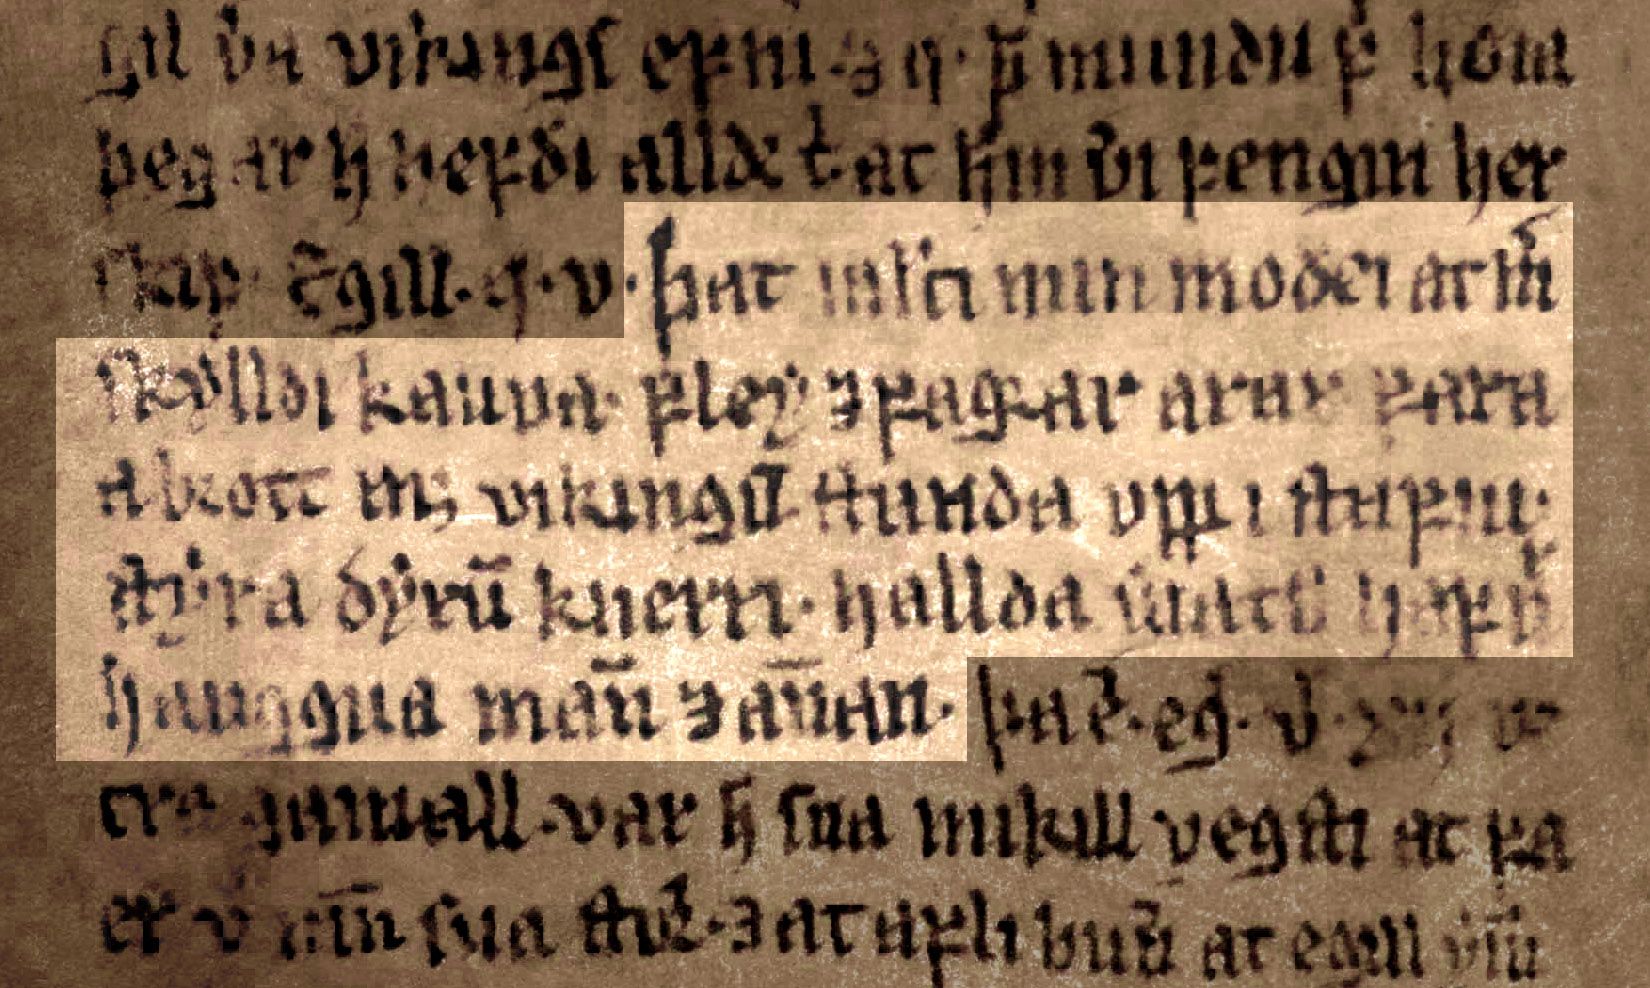 gil v͛a vikangs efni ⁊ q. þ̅ mundu f͛ hōm
þegar h̅ hefdi alldr t͛ at hm̅ v͛i fengin her
skip. Egill. q. v. Þat mlti min moder at m͛
skylldi kaupa. fley ⁊ fagrar arar fara
a brott mꝫ vikingū standa vpp i stafni.
styra dyrū knerri. hallda s͛ til hafn͛
hauggua man̅ ⁊ an̅an. þa er. eg̅. v͛ .xij. ve
tra gamall. var h̅ sua mikill vexti at fa
er v m̅n sua stor͛. ⁊ at afli bun͛ at egill